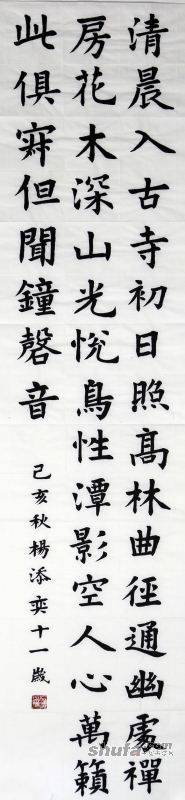 清晨入古寺初日照髙林曲徑通幽處禪
房花木深山光悅鳥性潭影空人心萬籟
此俱寂但聞鐘磬音
己亥秋楊添奕十一歲